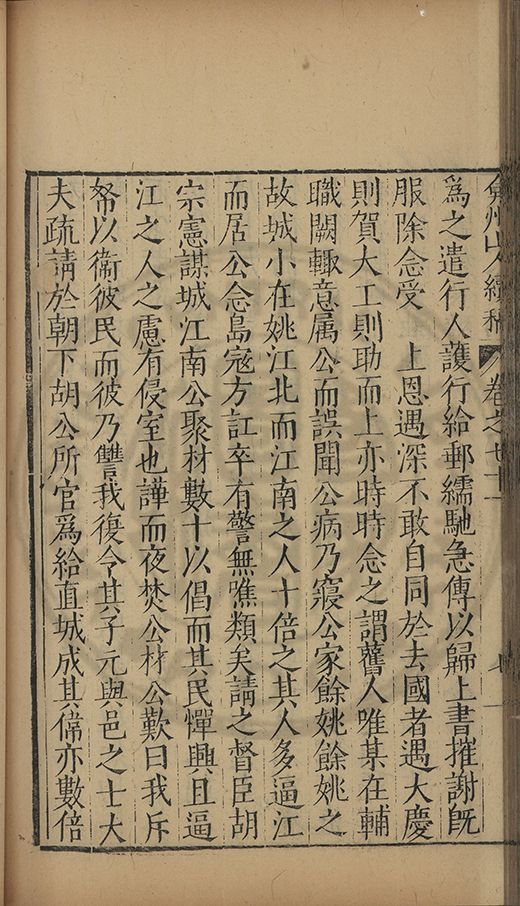 弇州山人續稿 卷之七十一 七
爲之遣行人護行給郵繻馳急傳以歸上書摧謝既
服除念受 上恩遇深不敢自同於去國者遇大慶
則賀大工則助而上亦時時念之謂舊人唯某在輔
職闕輙意属公而誤聞公病乃寢公家餘姚餘姚之
故城小在姚江北而江南之人十倍之其人多逼江
而居公念島寇方訌卒有警無噍類矣請之督臣胡
宗憲謀城江南公聚材數十以倡而其民憚興且逼
江之人之慮有侵室也譁而夜焚公材公歎曰我斥
帑以衞彼民而彼乃讐我復令其子元與邑之士大
夫疏請於朝下胡公所官爲給直城成其偹亦數倍